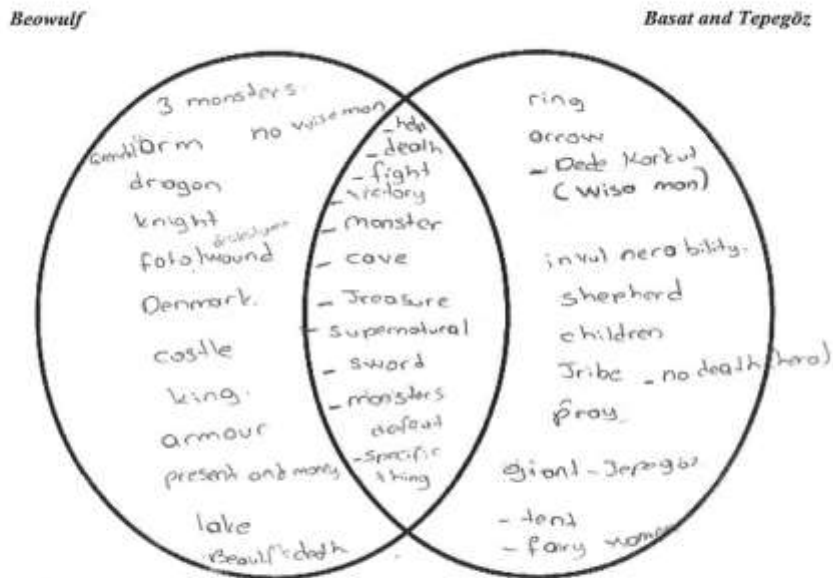 Beowulf
Basat and Tepegöz
3 monsters.
no wise man
arm
dragon
knight
fatal wound
Denmark.
castle
king.
armour
present and money
lake
Beaulf's death
- help
- death
- fight
- victory
- monster
- cave
- Treasure
- supernatural
- sword
- monsters
defeat
- specific
thing
ring
arrow
- Dede Korkut
(wise man)
invulnerability.
shepherd
children
Tribe - no death (hero)
pray
giant - Tepegöz
- tent
- fairy woman